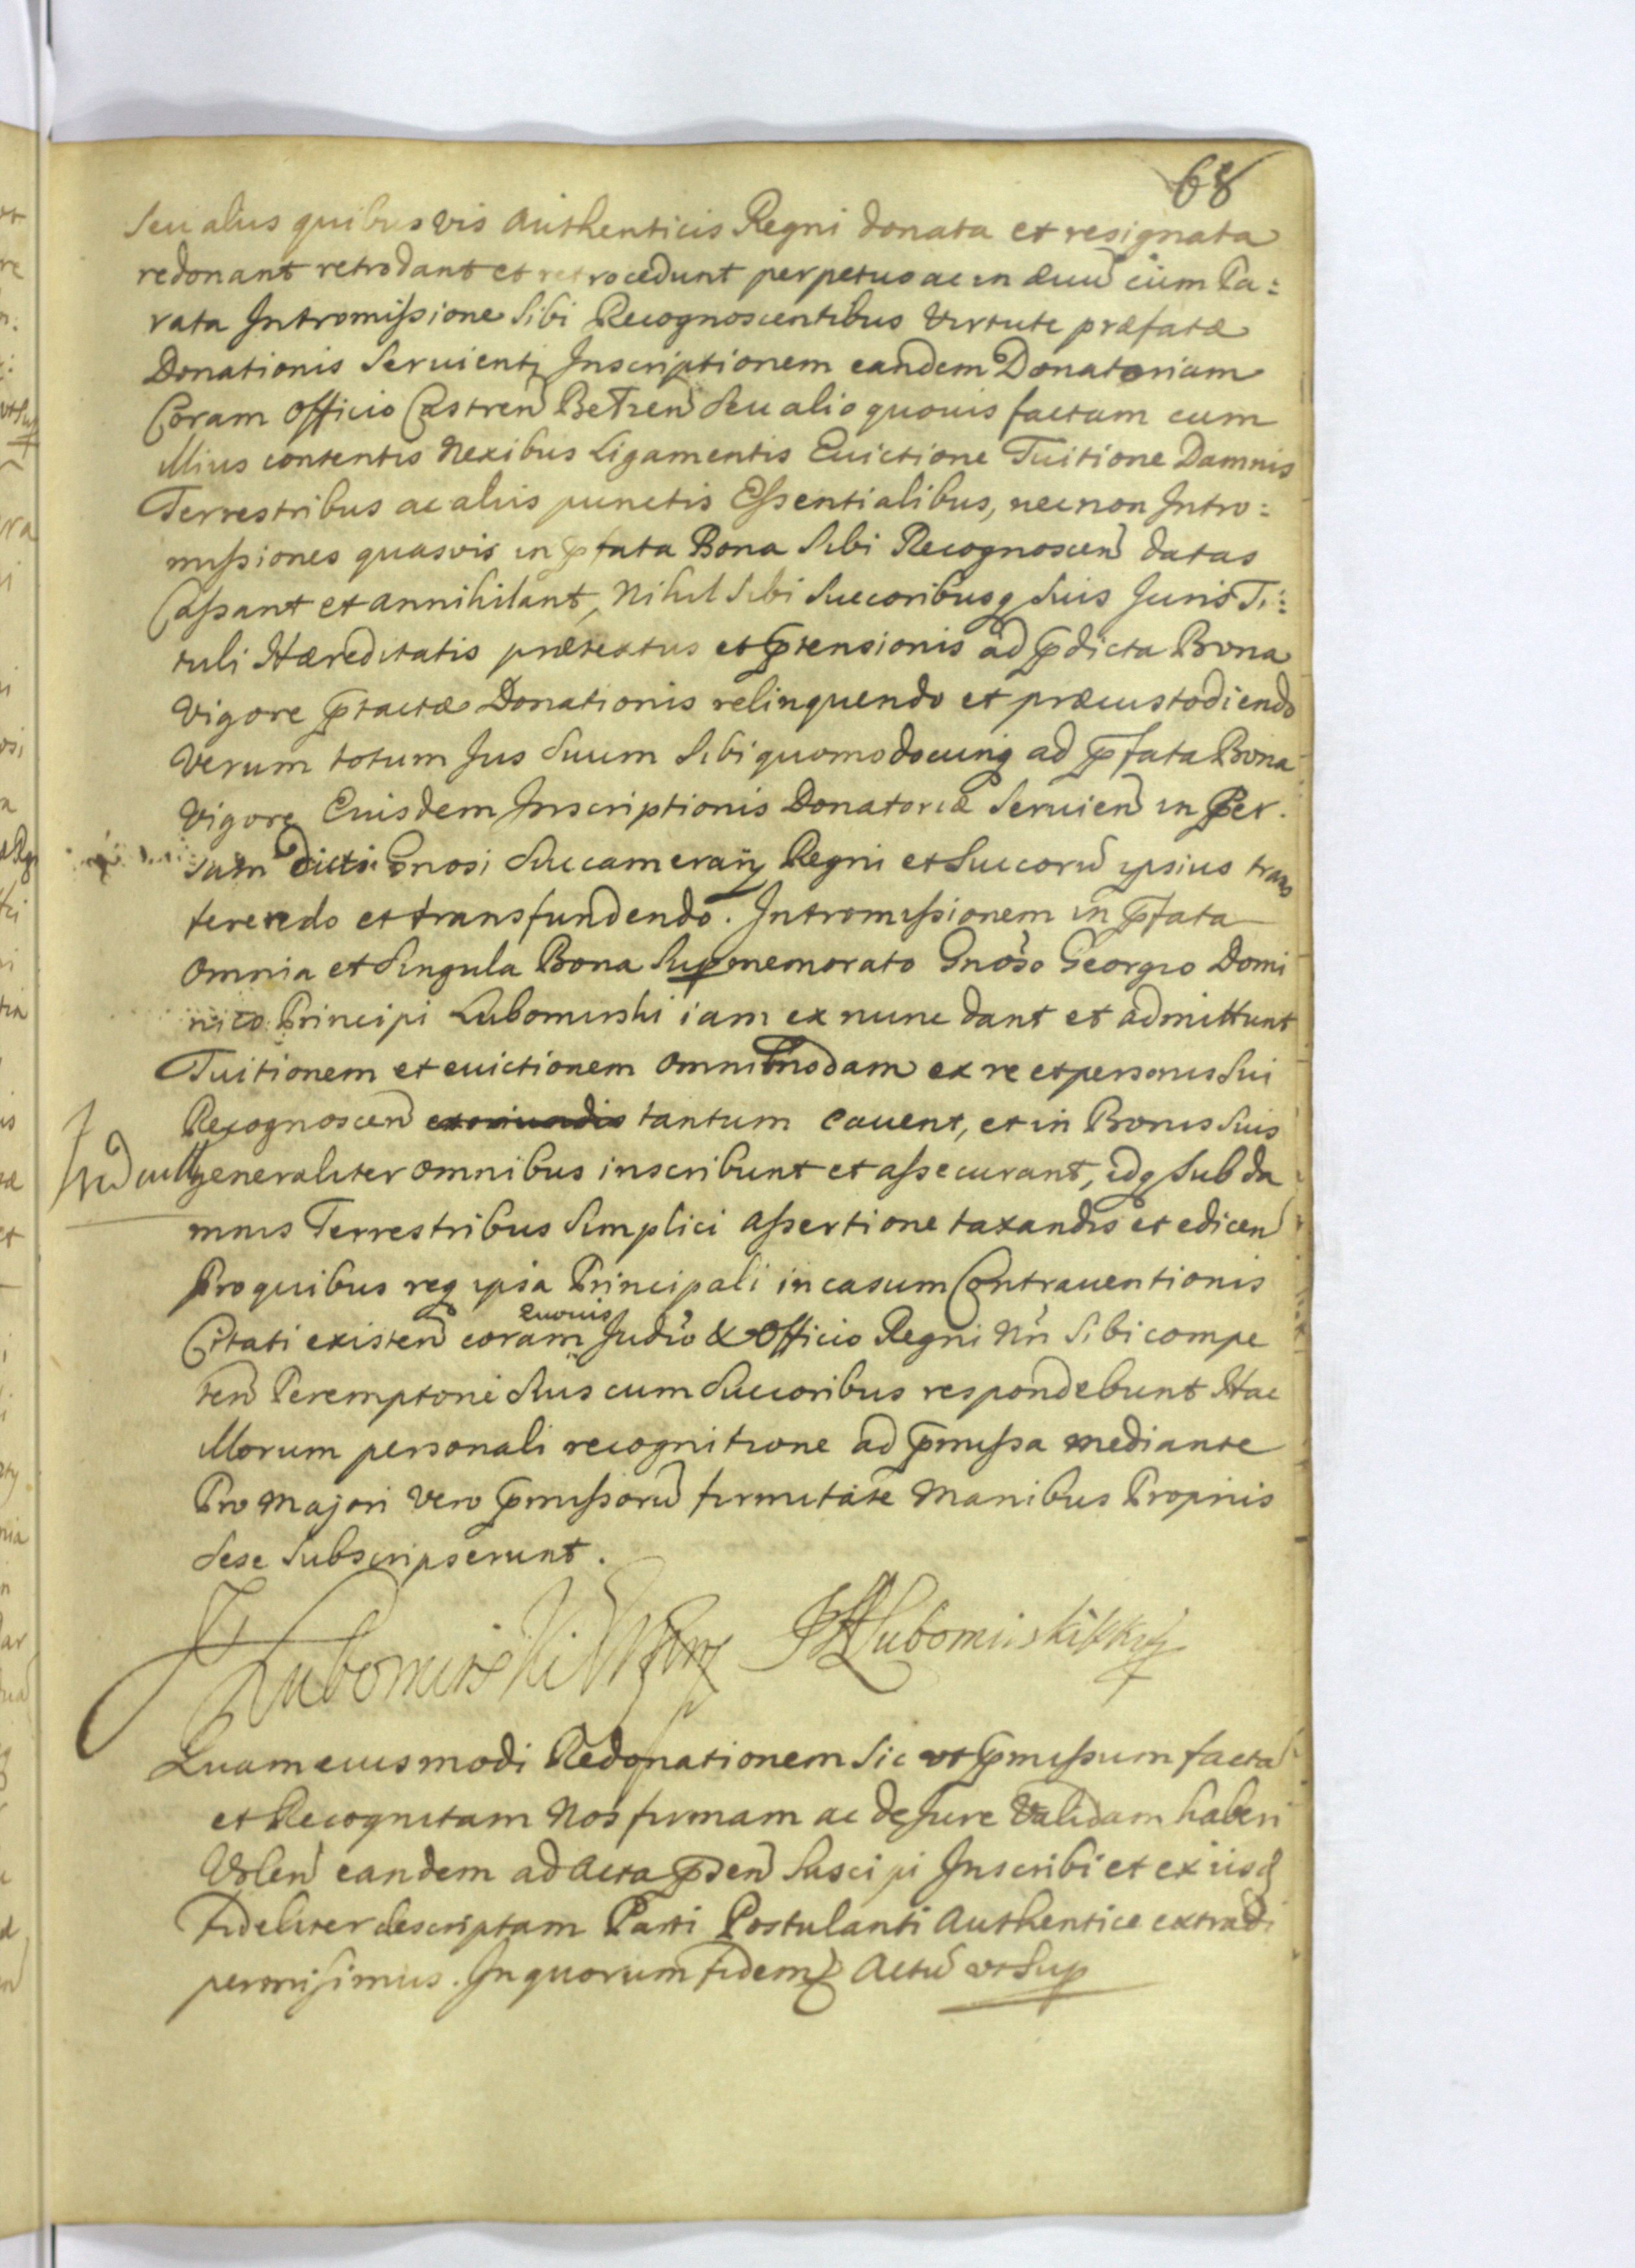 68
Seu aliis quibusvis Authenticis Regni donata et resignata
redonant retrodant et retrocedunt perpetuo ac in æuũ cum Pa:
rata Intromissione Sibi Recognoscentibus Virtute præfatæ
Donationis Servienti Inscriptionem eandem Donatoriam
Coram Officio Castreñ Belzeñ Seu alio quouis factam cum
Illius contentis Nexibus Ligamentis Euictione Tuitione Damnis
Terrestribus ac aliis punctis Essentialibus, nec non Intro:
missiones quasvis in p̄fata Bona Sibi Recognosceñ datas
Cassant et annihilant, Nihil Sibi Succoribusq Suis Juris Ti:
tuli Hæreditatis prætextus et p̄tensionis ad p̄dicta Bona
Vigore p̄tactæ Donationis relinquendo et præcustodiendo
Verum totum Jus Suum Sibi quomodocunq ad p̄fata Bona
Vigore Eiusdem Inscriptionis Donatoriæ Servieñ in Per.
sam dicti Gnosi Succamerarij Regni et Succorũ ipsius trans
ferendo et transfundendo. Intromissionem in p̄fata
Omnia et Singula Bona Supmemorato Gnoso Georgio Domi
nico Principi Lubomirski iam ex nunc dant et admittunt
Tuitionem et euictionem Omnimodam ex re et personis Sui
Recognosceñ tantum cauent, et in Bonis Suis
generaliter omnibus inscribunt et assecurant, idq Sub da
mnis Terrestribus Simplici assertione taxandis et ediceñ
Pro quibus req ipsa Principali in casum Contrauentionis
Citati existeñ coram quouis Judio & Officio Regni Nñ Sibi compe
teñ Peremptorie Suis cum Succoribus respondebunt Hac
Illorum personali recognitione ad p̄missa mediante
Pro Majori Vero p̄missorũ firmitate Manibus Propriis
Sese Subscripserunt.
Lubomirski
Lubomirski
Quam eiusmodi Redonationem Sic ut p̄missum factã
et Recognitam Nos firmam ac de Jure Validam haberi
Voleñ eandem ad Acta p̄señ Suscipi Inscribi et ex iisd
Fideliter descriptam Parti Postulanti Authentice extradi
permisimus. In quorum fidem Actũ ut Sup